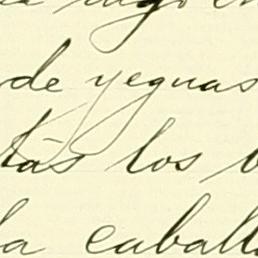 de yeguas
tás los
la caball